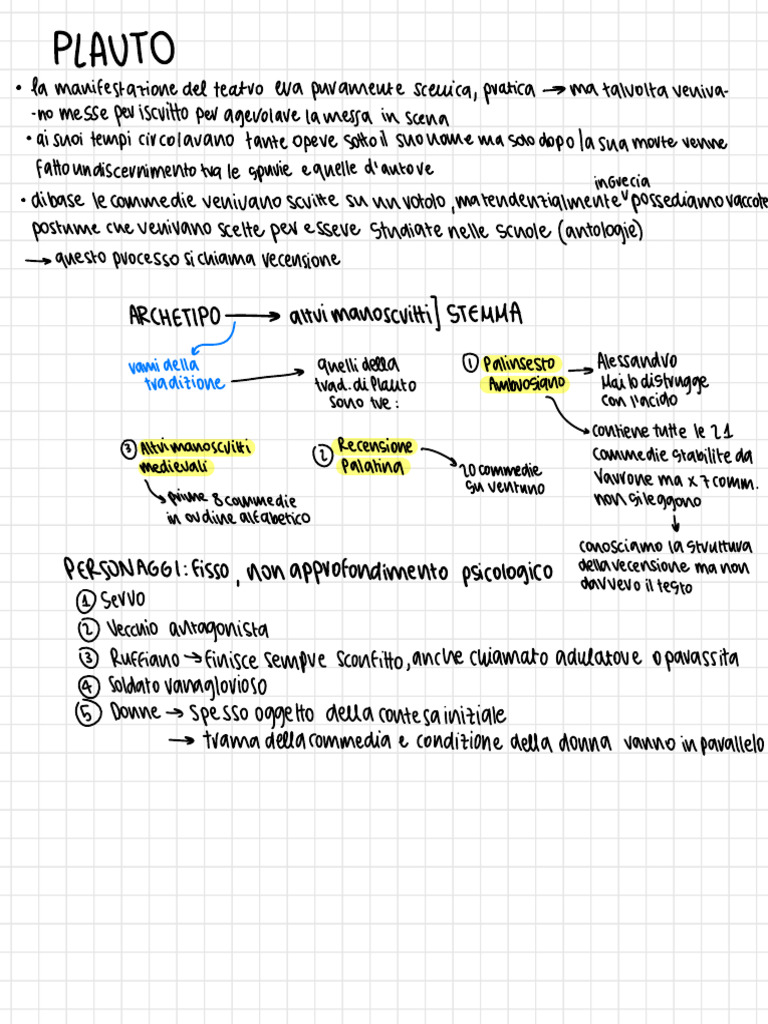 PLAUTO
• la manifestazione del teatro era puramente scenica, pratica → ma talvolta veniva-
-no messe per iscritto per agevolare la messa in scena
• ai suoi tempi circolavano tante opere sotto il suo nome ma solo dopo la sua morte venne
fatto un discernimento tra le spurie e quelle d'autore
in Grecia
• di base le commedie venivano scritte su un rotolo, ma tendenzialmente possediamo raccolte
postume che venivano scelte per essere studiate nelle scuole (antologie)
→ questo processo si chiama recensione
ARCHETIPO → altri manoscritti] STEMMA
rami della
tradizione →
quelli della
trad. di Plauto
sono tre:
① Palinsesto
Ambrosiano
→ Alessandro
Mai lo distrugge
con l'acido
→ contiene tutte le 21
commedie stabilite da
Varrone ma x 7 comm.
non si leggono
conosciamo la struttura
della recensione ma non
davvero il testo
② Recensione
Palatina
20 commedie
su ventuno
③ Altri manoscritti
medievali
prime 8 commedie
in ordine alfabetico
PERSONAGGI: fisso, non approfondimento psicologico
① Servo
② Vecchio antagonista
③ Ruffiano → finisce sempre sconfitto, anche chiamato adulatore o parassita
④ Soldato vanaglorioso
⑤ Donne → spesso oggetto della contesa iniziale
→ trama della commedia e condizione della donna vanno in parallelo